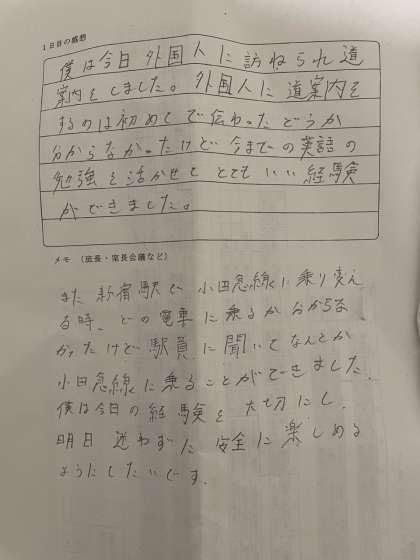 1日目の感想
僕は今日外国人に訪ねられ道
案内をしました。外国人に道案内を
するのは初めてで伝わったどうか
分からなかったけど今までの英語の
勉強を活かせてとてもいい経験
ができました。
メモ (班長・室長会議など)
また新宿駅で小田急線に乗り変え
る時、どの電車に乗るか分からな
かったけど駅員に聞いてなんとか
小田急線に乗ることができました。
僕は今日の経験を大切にし、
明日迷わずに安全に楽しめる
ようにしたいです。